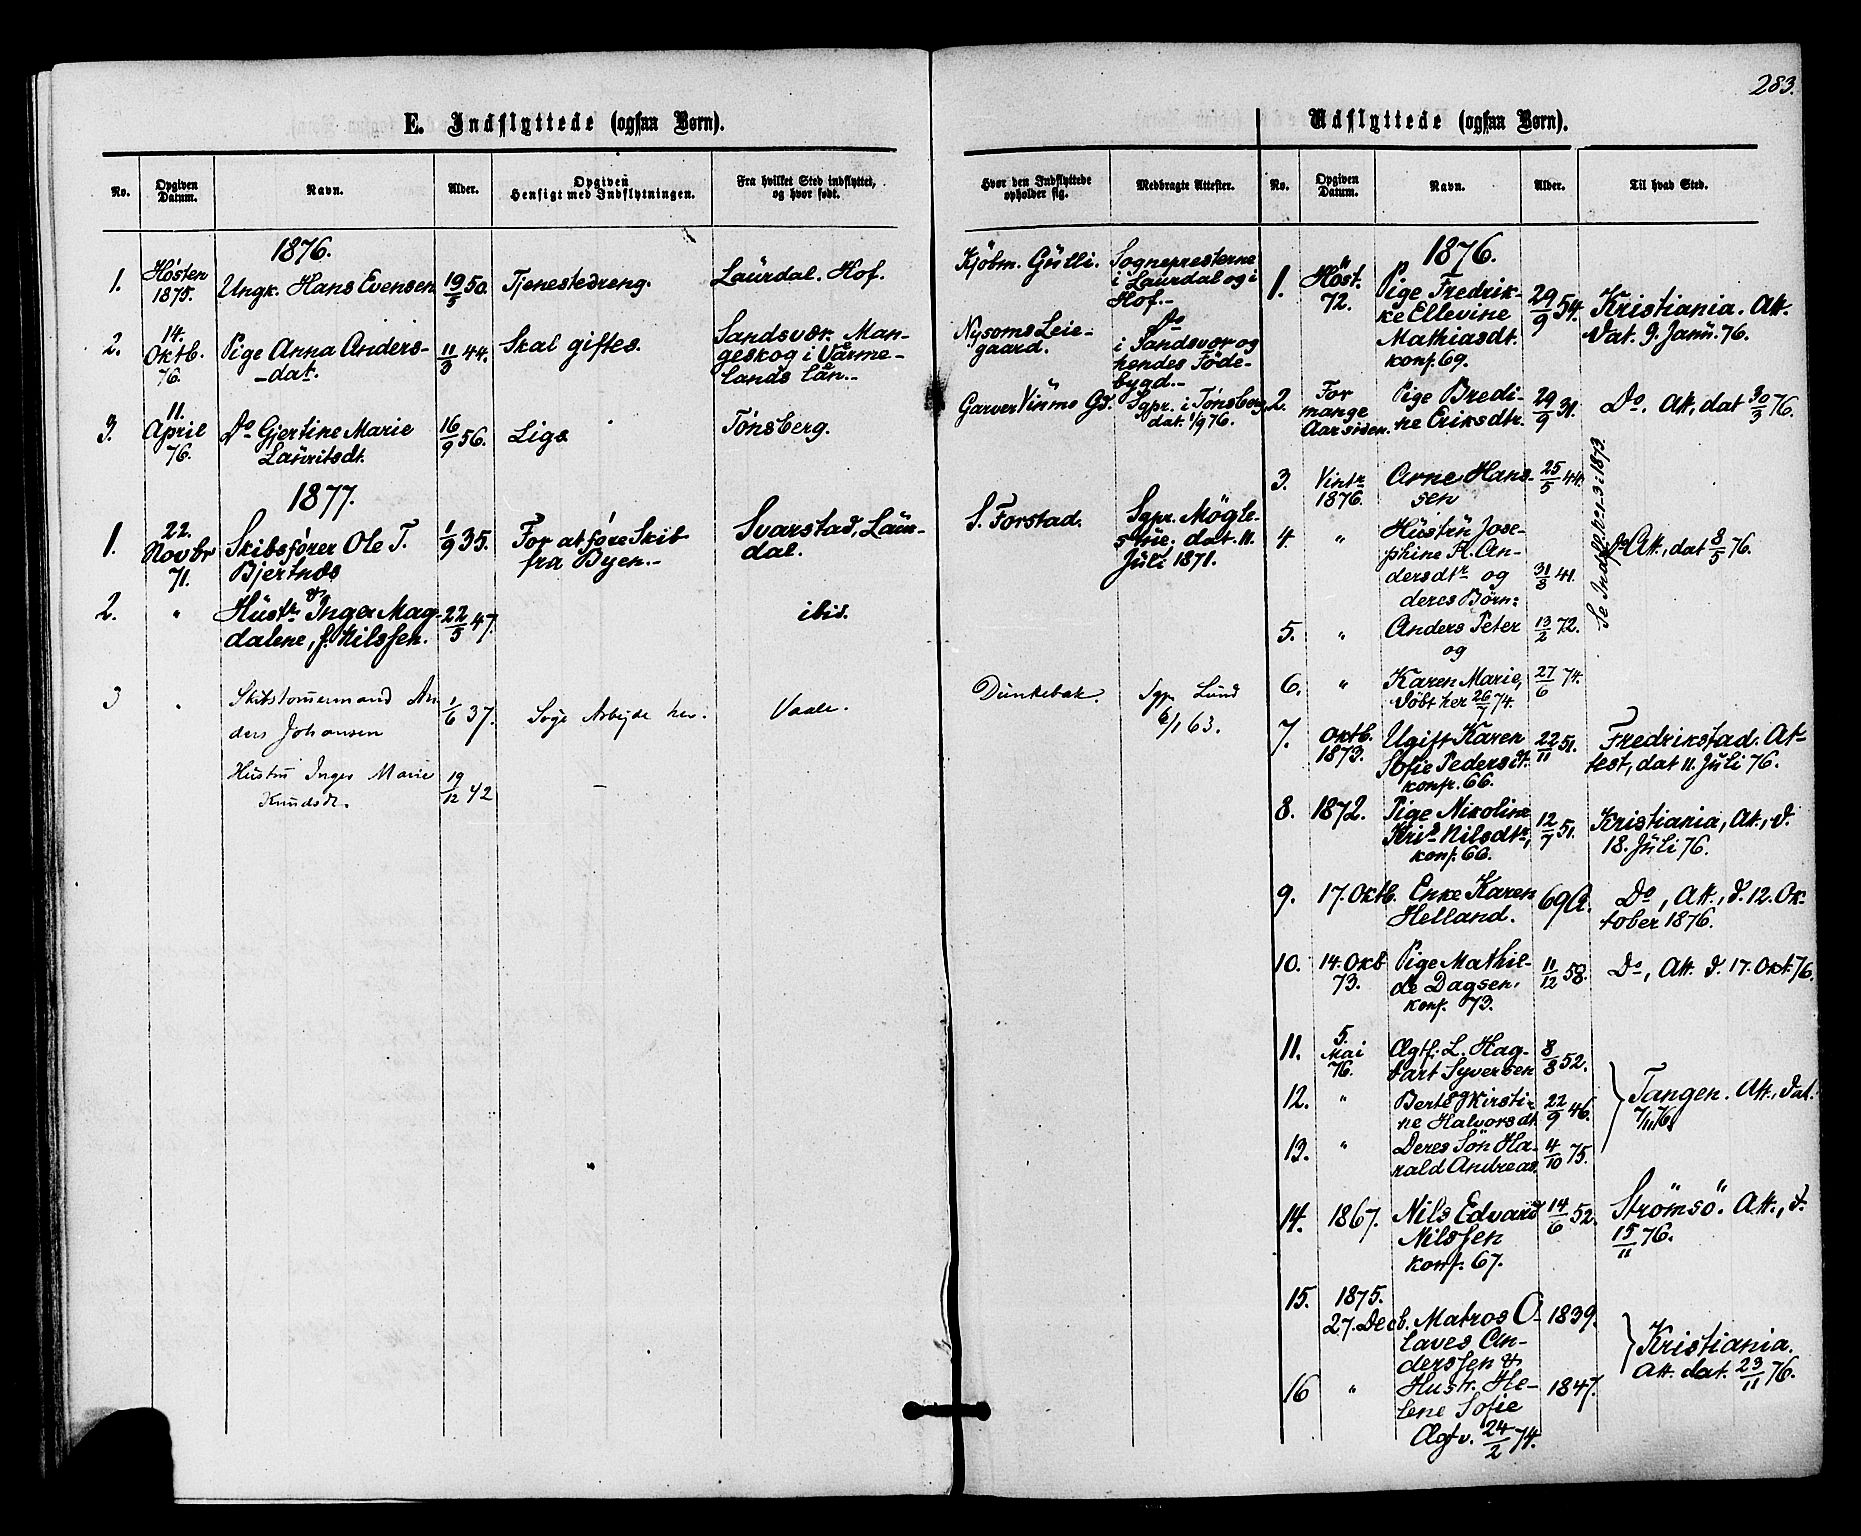 283.
E. Indflyttede (ogsaa Børn).
No.
Opgiven Datum.
Navn.
Alder.
Opgiven Hensigt med Indflytningen.
Fra hvilket Sted indflyttet, og hvor født.
Hvor den Indflyttede opholder sig.
Medbragte Attester.
1876.
1. Høsten 1875. Ungk. Hans Evensen 19/5 50. Tjenestedreng. Laurdal. Hof. Kjøbm. Gulli. Sognepresterne
i Laurdal og i
Hof.-
2. 14. Oktb. 76. Pige Anna Anders-
-dat. 11/3 44. Skal giftes. Sandsvær. Man-
geskog i Värme-
lands län.- Nysoms Leie-
gaard. Do
i Sandsvær og
hendesFöde-
bygd.-
3. 11. April 76. Do Gjertine Marie
Lauritsdt. 16/9 56. Lige Tønsberg. Garver Gd. Sgpr. i Tønsberg,
dat. 1/9 76.
1877.
1. 22. Novbr 71. Skibsfører Ole T.
Bjertnæs
& 1/9 35. For at føre Skib
fra Byen.- Svarstad, Laur-
dal. S. Forstad. Sgpr. Mögle-
stue. dat. 11.
Juli 1871.
2. " Hustr. Inger Mag-
dalene, f. Nilssen. 22/5 47. ibid.
3 " Skibstømmermand An
ders Johansen 1/6 37. Søge Arbejde her. Vaale. Dunkebak. Sgpr. Lund
6/1 63.
Hustru Inger Marie
Knudsdr. 19/12 42 -
Udflyttede (ogsaa Børn).
No.
Opgiven Datum.
Navn.
Alder.
Til hvad Sted.
1876.
1. Höst. 72. Pige Fredrik-
ke Ellevine
Mathiasdt.
konf. 69. 29/9 54. Kristiania. Att.
dat. 9. Janu. 76.
2. For
mange
Aar siden. Pige Bredi-
ne Eriksdtr. 29/9 31. Do. Att, dat 30/3 76.
3. Vintr
1876. Arne Hans-
sen 25/5 44.
Se Indfl. 1873.
4. " Hustru Jose-
phine H. An-
dersdtr og
deres Børn: 31/3 41. Do Att, dat 8/5 76.
5. " Anders Peter
og 13/2 72.
6. " Karen Marie,
døbt her 26/7 74. 27/6 74.
7. Oktb.
1873. Ugift Karen
Sofie Pedersdt.
konf. 66. 22/11 51. Fredrikstad. At-
test, dat 11. Juli 76.
8. 1872. Pige Nikoline
Kris. Nilsdtr,
konf. 66. 12/7 51. Kristiania, Att., d.
18. Juli 76.
9. 17. Oktb. Enke Karen
Helland. 69 A. Do, Att., d. 12. Ok-
tober 1876.
10. 14. Okb
73. Pige Mathil-
de Dagsen,
konf. 73. 11/12 58. Do, Att. d. 17. Okt. 76.
11. 5.
Mai
76. Ægtf: L. Hag-
bart Syversen 8/8 52.
og
12. " Berte Kirsti-
ne Halvorsdt. 22/9 46. Tangen. Att., dat.
7/11 76.
13. " Deres Søn Ha-
rald Andreas. 4/10 75.
14. 1867. Nils Edvard
Nilssen
konf. 67. 14/6 52. Strömsö. Att., d.
15/11 76.
15. 1875.
27. Decb. Matros O-
laves An-
derssen & 1839. Kristiania.
Att. dat. 23/11 76.
16 " Hustr. He-
lene Sofie
Ægtv. 24/2 74. 1847.